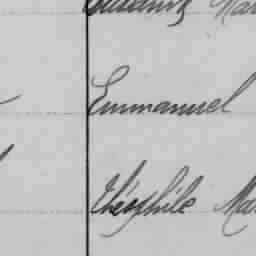 Emmanuel
Théophile Ma